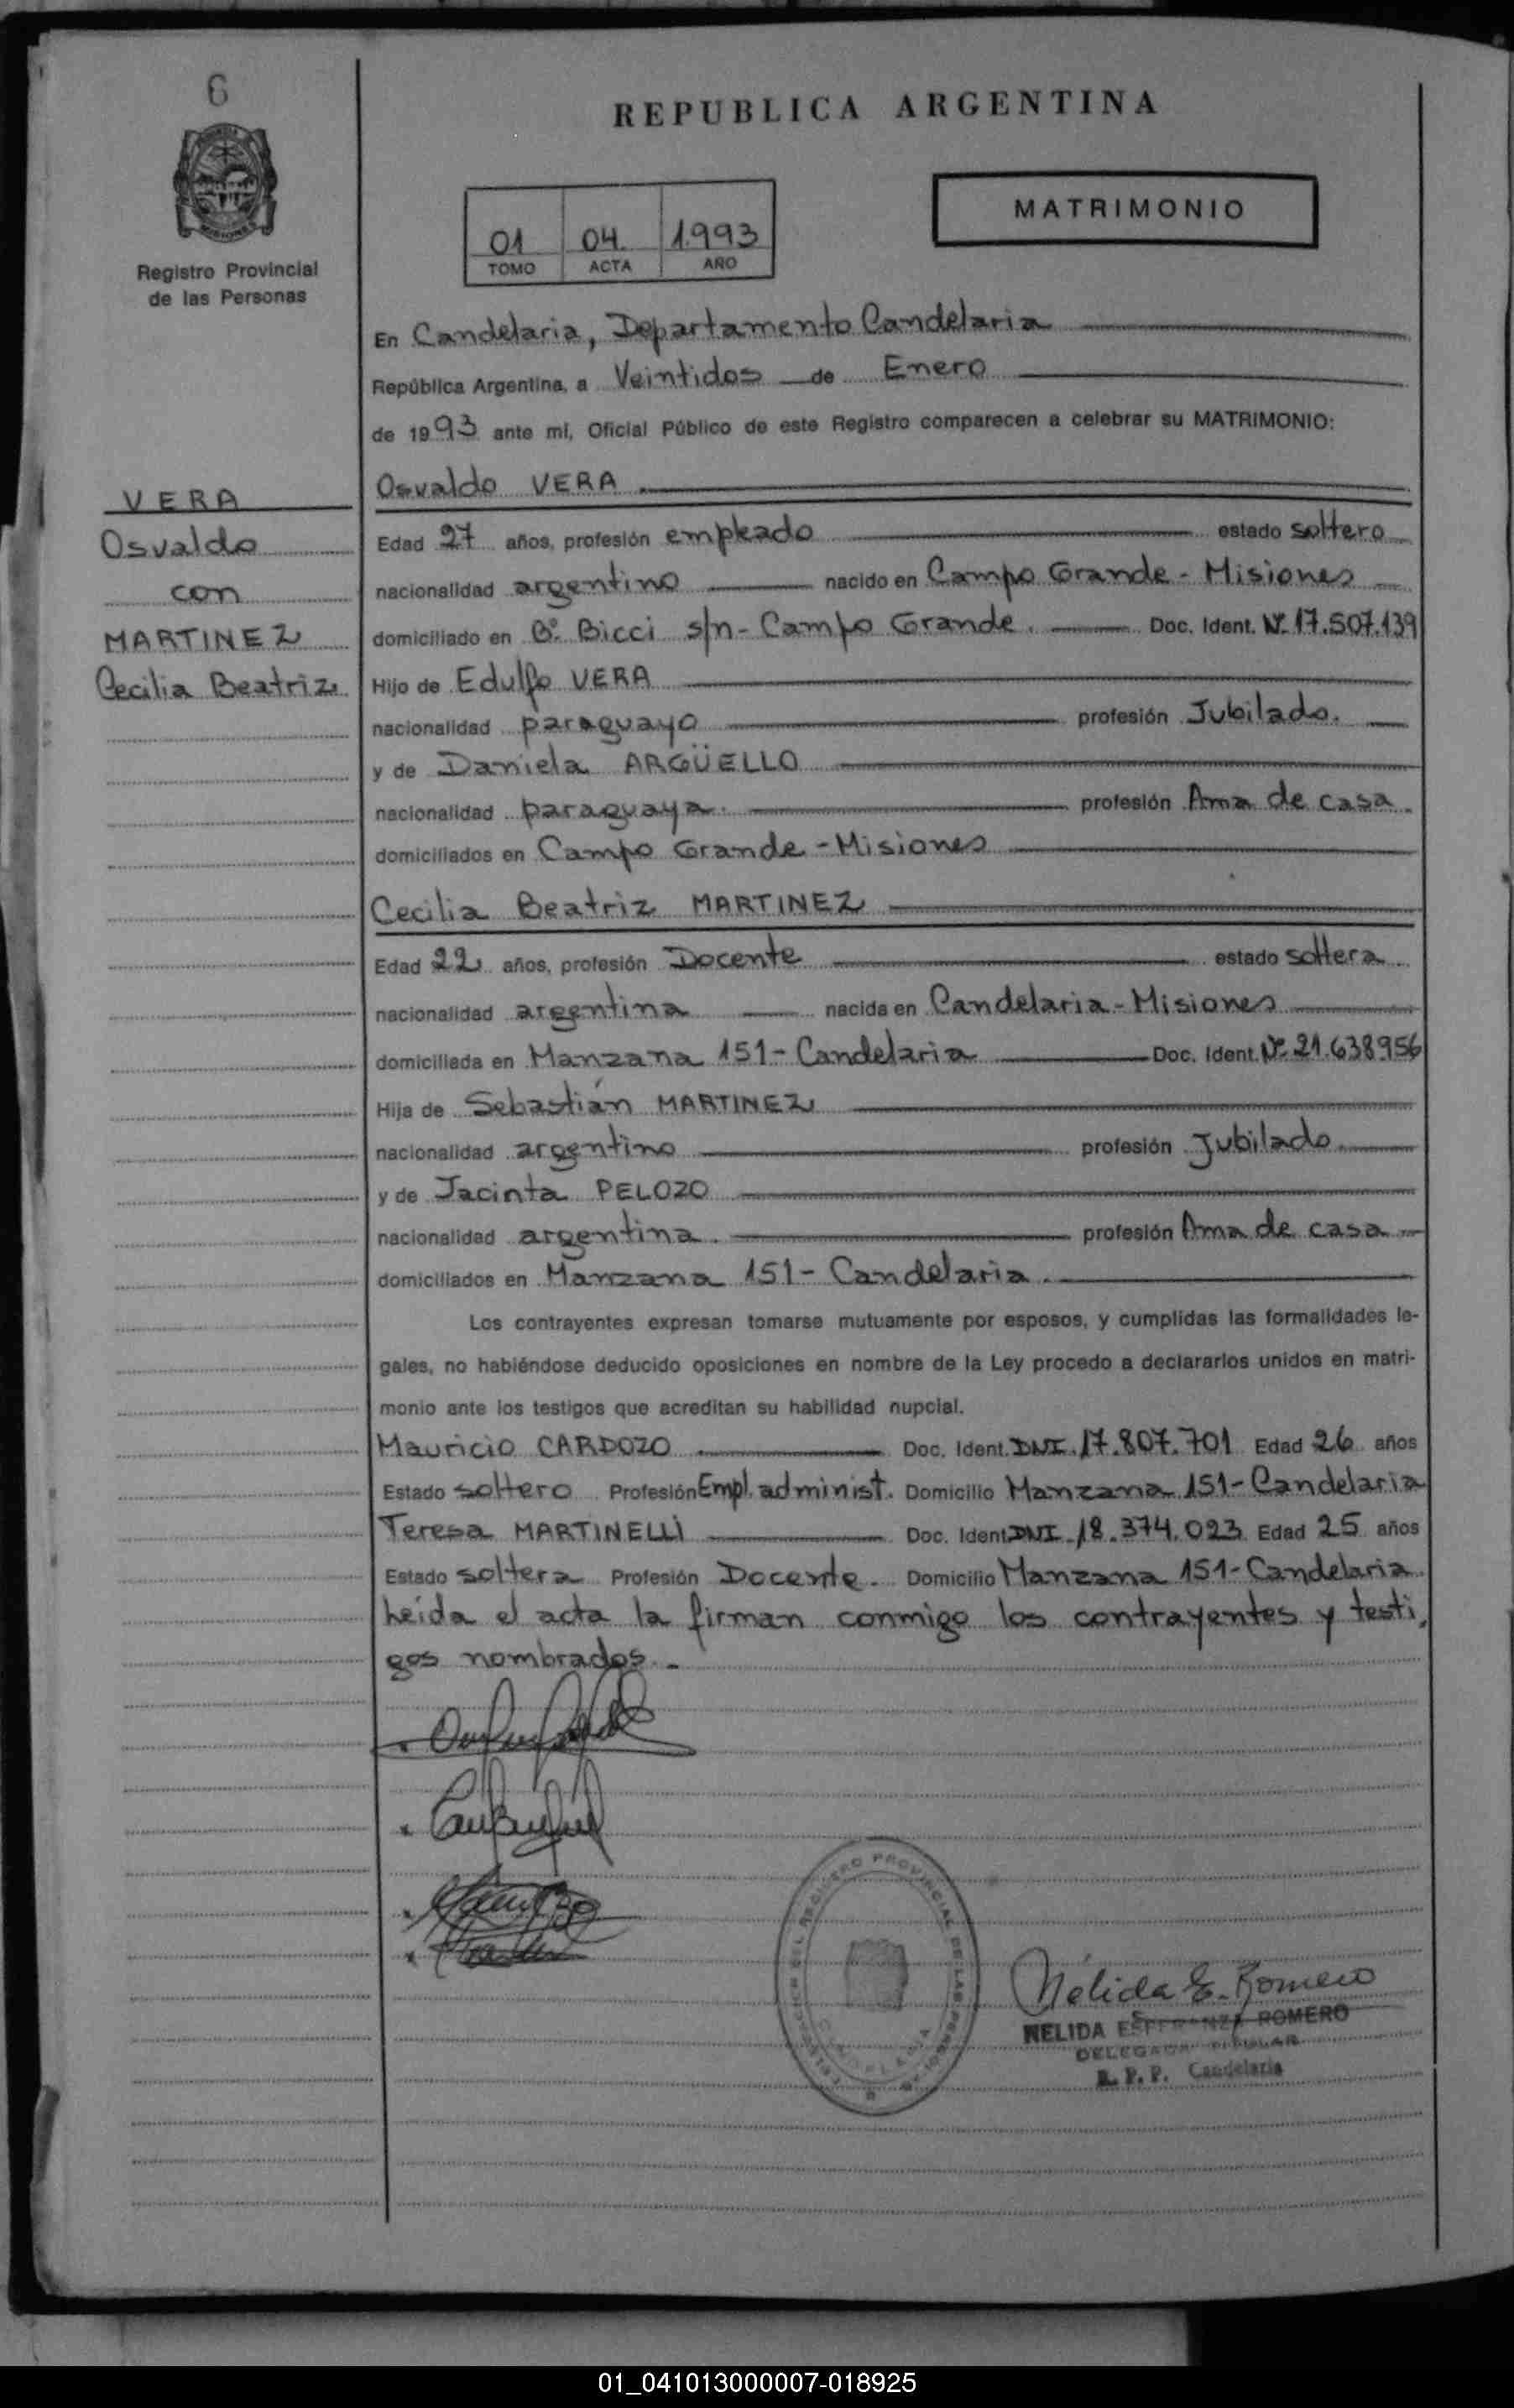 6
REPUBLICA ARGENTINA
MATRIMONIO
01 04. 1.993
TOMO ACTA AÑO
MISIONES
Registro Provincial
de las Personas
En Candelaria, Departamento Candelaria
República Argentina, a Veintidos de Enero
de 1993 ante mí, Oficial Público de este Registro comparecen a celebrar su MATRIMONIO:
VERA
Osvaldo
con
MARTINEZ
Cecilia Beatriz
Osvaldo VERA
Edad 27 años, profesión empleado estado soltero
nacionalidad argentino nacido en Campo Grande - Misiones
domiciliado en Bº. Bicci s/n - Campo Grande. Doc. Ident. Nº 17.507.139
Hijo de Edulfo VERA
nacionalidad paraguayo profesión Jubilado.
y de Daniela ARGÜELLO
nacionalidad paraguaya. profesión Ama de casa.
domiciliados en Campo Grande - Misiones
Cecilia Beatriz MARTINEZ
Edad 22 años, profesión Docente estado soltera
nacionalidad argentina nacida en Candelaria - Misiones
domiciliada en Manzana 151 - Candelaria Doc. Ident. Nº 21.638956
Hija de Sebastián MARTINEZ
nacionalidad argentino profesión Jubilado.
y de Jacinta PELOZO
nacionalidad argentina. profesión Ama de casa
domiciliados en Manzana 151 - Candelaria.
Los contrayentes expresan tomarse mutuamente por esposos, y cumplidas las formalidades le-
gales, no habiéndose deducido oposiciones en nombre de la Ley procedo a declararlos unidos en matri-
monio ante los testigos que acreditan su habilidad nupcial.
Mauricio CARDOZO Doc. Ident. DNI. 17.807.701 Edad 26 años
Estado soltero Profesión Empl. administ. Domicilio Manzana 151 - Candelaria
Teresa MARTINELLI Doc. Ident DNI 18.374.023 Edad 25 años
Estado soltera Profesión Docente. Domicilio Manzana 151 - Candelaria.
Leída el acta la firman conmigo los contrayentes y testi,
gos nombrados. -
REGISTRO PROVINCIAL DE LAS PERSONAS
Nélida E. Romero
NELIDA ESPERANZA ROMERO
DELEGADA TITULAR
R. P. P. Candelaria
01_041013000007-018925